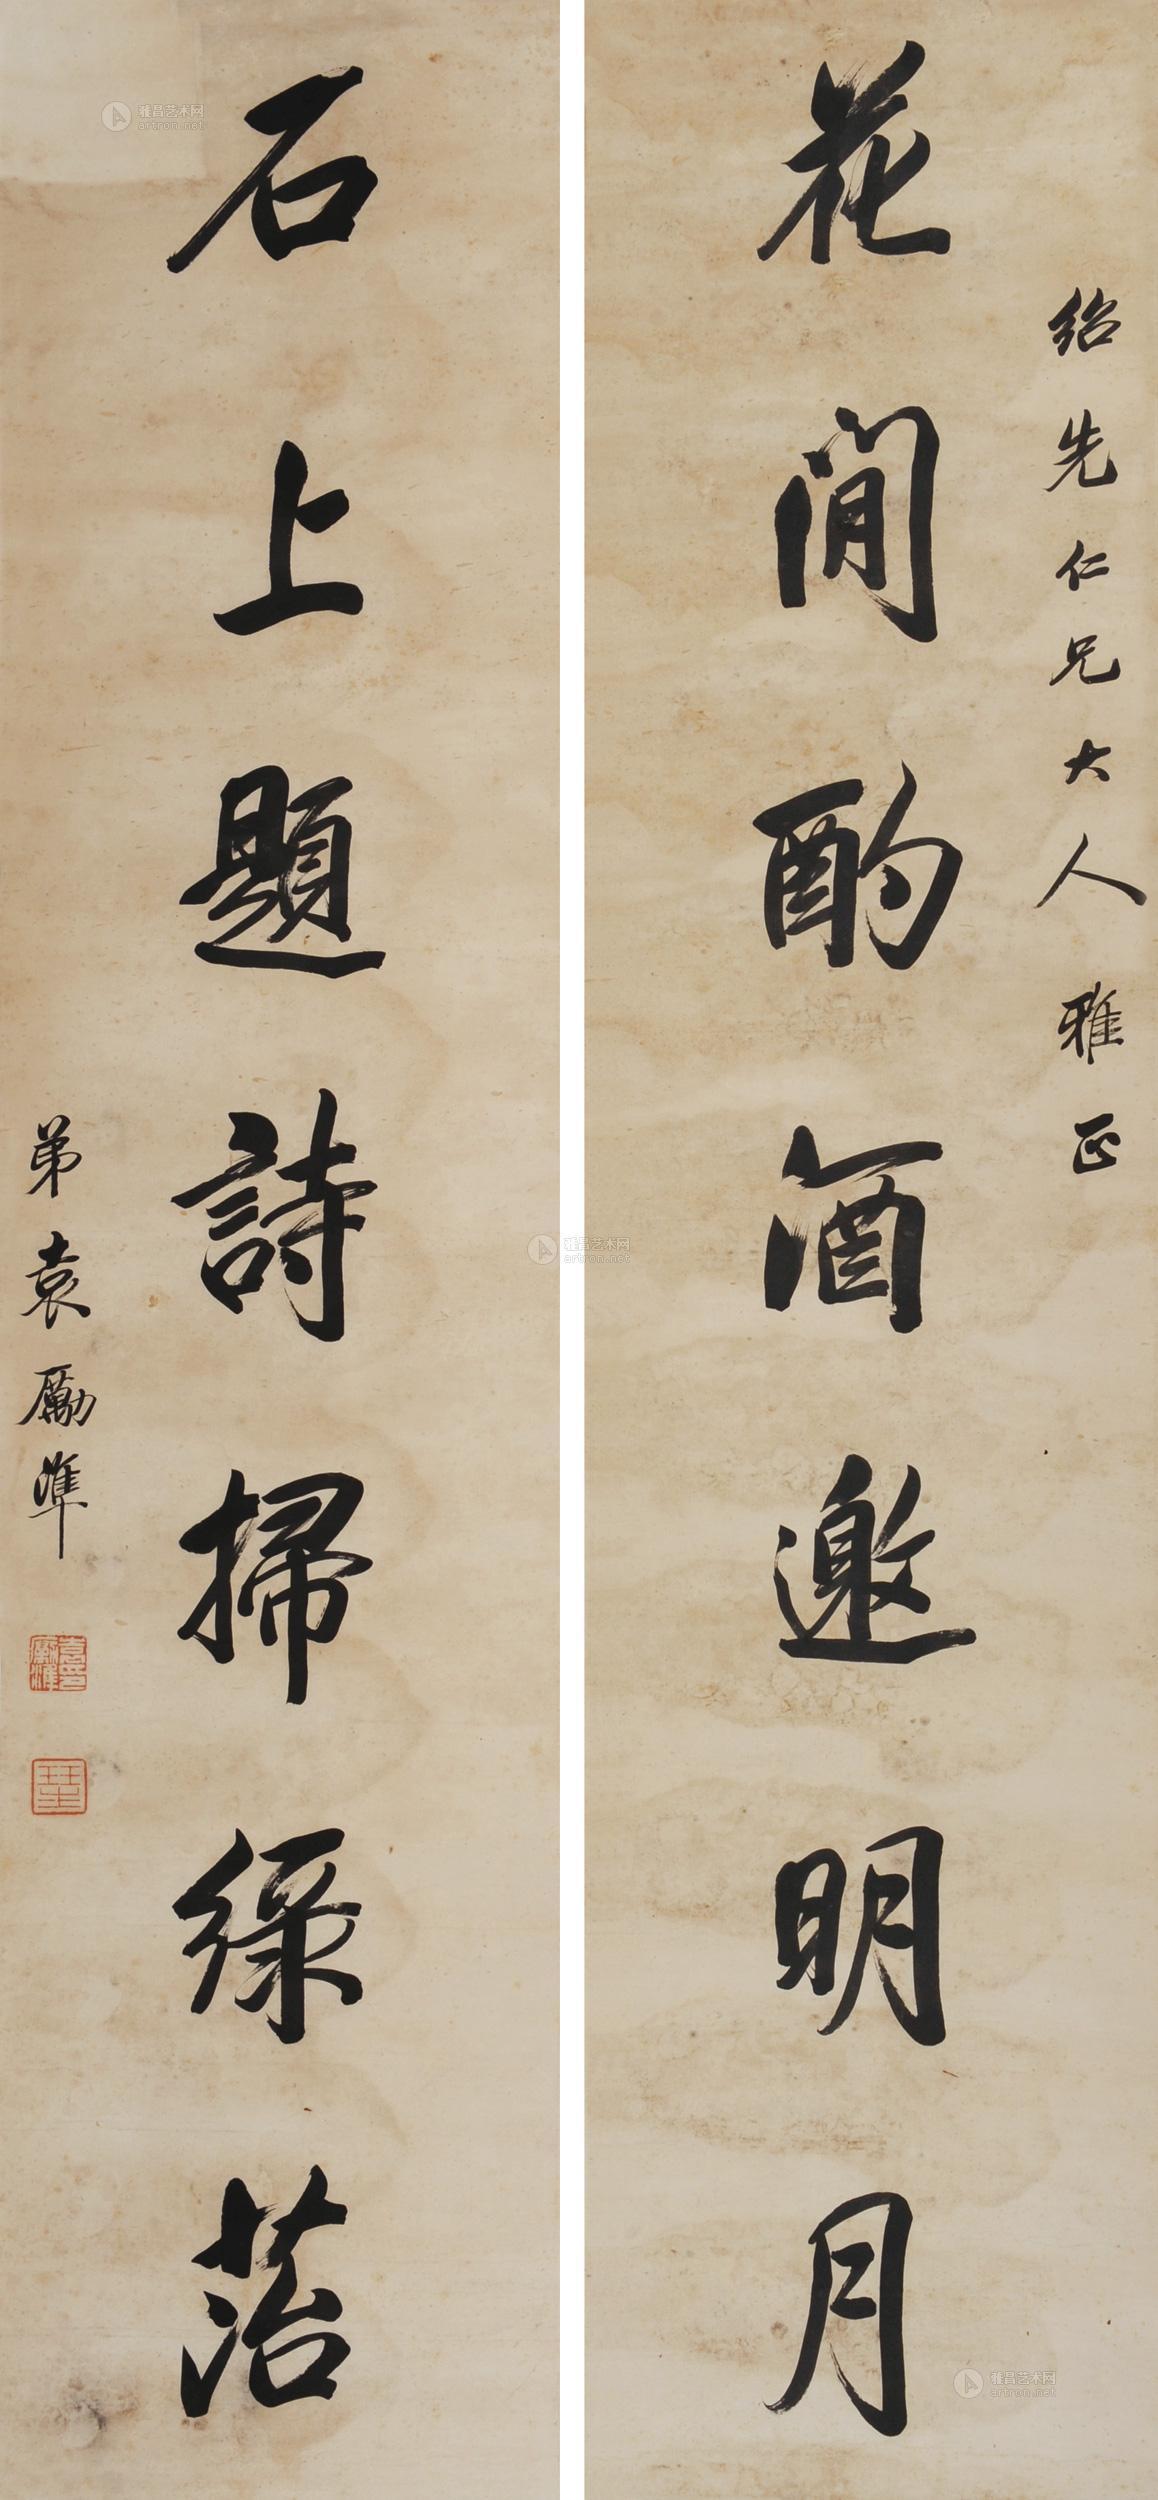 花間酌酒邀明月
紹先仁兄大人雅正
石上題詩掃綠苔
弟袁勵準
雅昌艺术网
artron.net
雅昌艺术网
artron.net
雅昌艺术网
artron.net